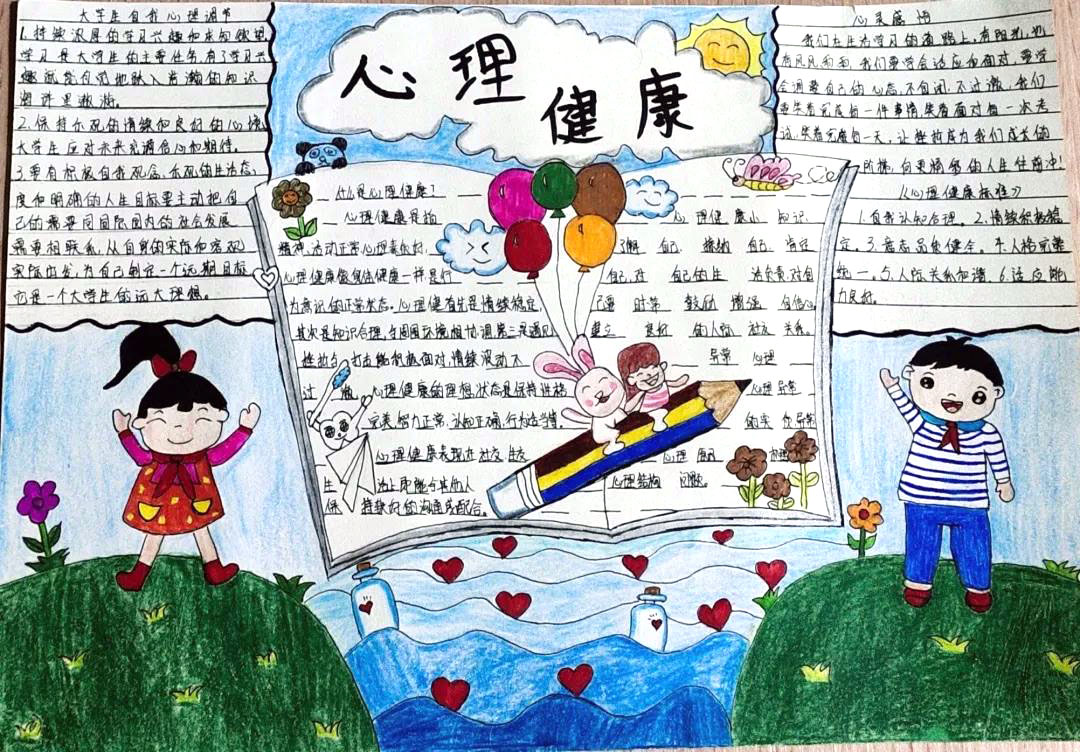 心理
健康
大学生自我心理调节
1.持续浓厚的学习兴趣和求知欲望
学习是大学生的主要任务,有了学习兴
趣就能自觉地融入浩瀚的知识
海洋里遨游。
2.保持乐观的情绪和良好的心境
大学生应对未来充满信心和期待。
3.要有积极自我观念、乐观的生活态
度和明确的人生目标要主动把自
己的需要同国际国内的社会发展
需要相联系,从自身的实际和客观
实际出发,为自己制定一个远期目标
它是一个大学生的远大理想。
什么是心理健康?
心理健康是指
精神、活动正常、心理素质好。
心理健康像身体健康一样是
为常识的正常状态。心理健首先是情绪稳定,
其次是知识合理,与周围环境相协调,第三是遇见
挫折与打击能积极面对,情绪波动不
过 心理健康的理想状态是保持性格
完美、智力正常、认知正确、行为适当情。
心理健康表现在社交 生
生 活上即能与其他人
保 持较好的沟通或配合。
心理健 康小 知识
了解 自己 接纳 自己 肯定
自己,对 自己的生 活负责,对自
己要 时常 鼓励 增强 自信心
建立 良好 的人际 社交 关系。
异常 心理
心理异常
的实 质异常
心理
心理结构
心灵感悟
我们在生活学习的道路上,有阳光,也
有风风雨雨,我们要学会适应和面对,要学
会调整自己的心态,不自闭,不过激,我们
要笑着完成每一件事情,笑着面对每一次考
试,笑着完成每一天,让挫折成为我们成长的
阶梯,向更精彩的人生仟前冲!
《心理健康标准》
1.自我认知合理。2.情绪积极稳
定。3.意志品质健全。4.人格完整
统一。5.人际关系和谐。6.适应能
力良好。